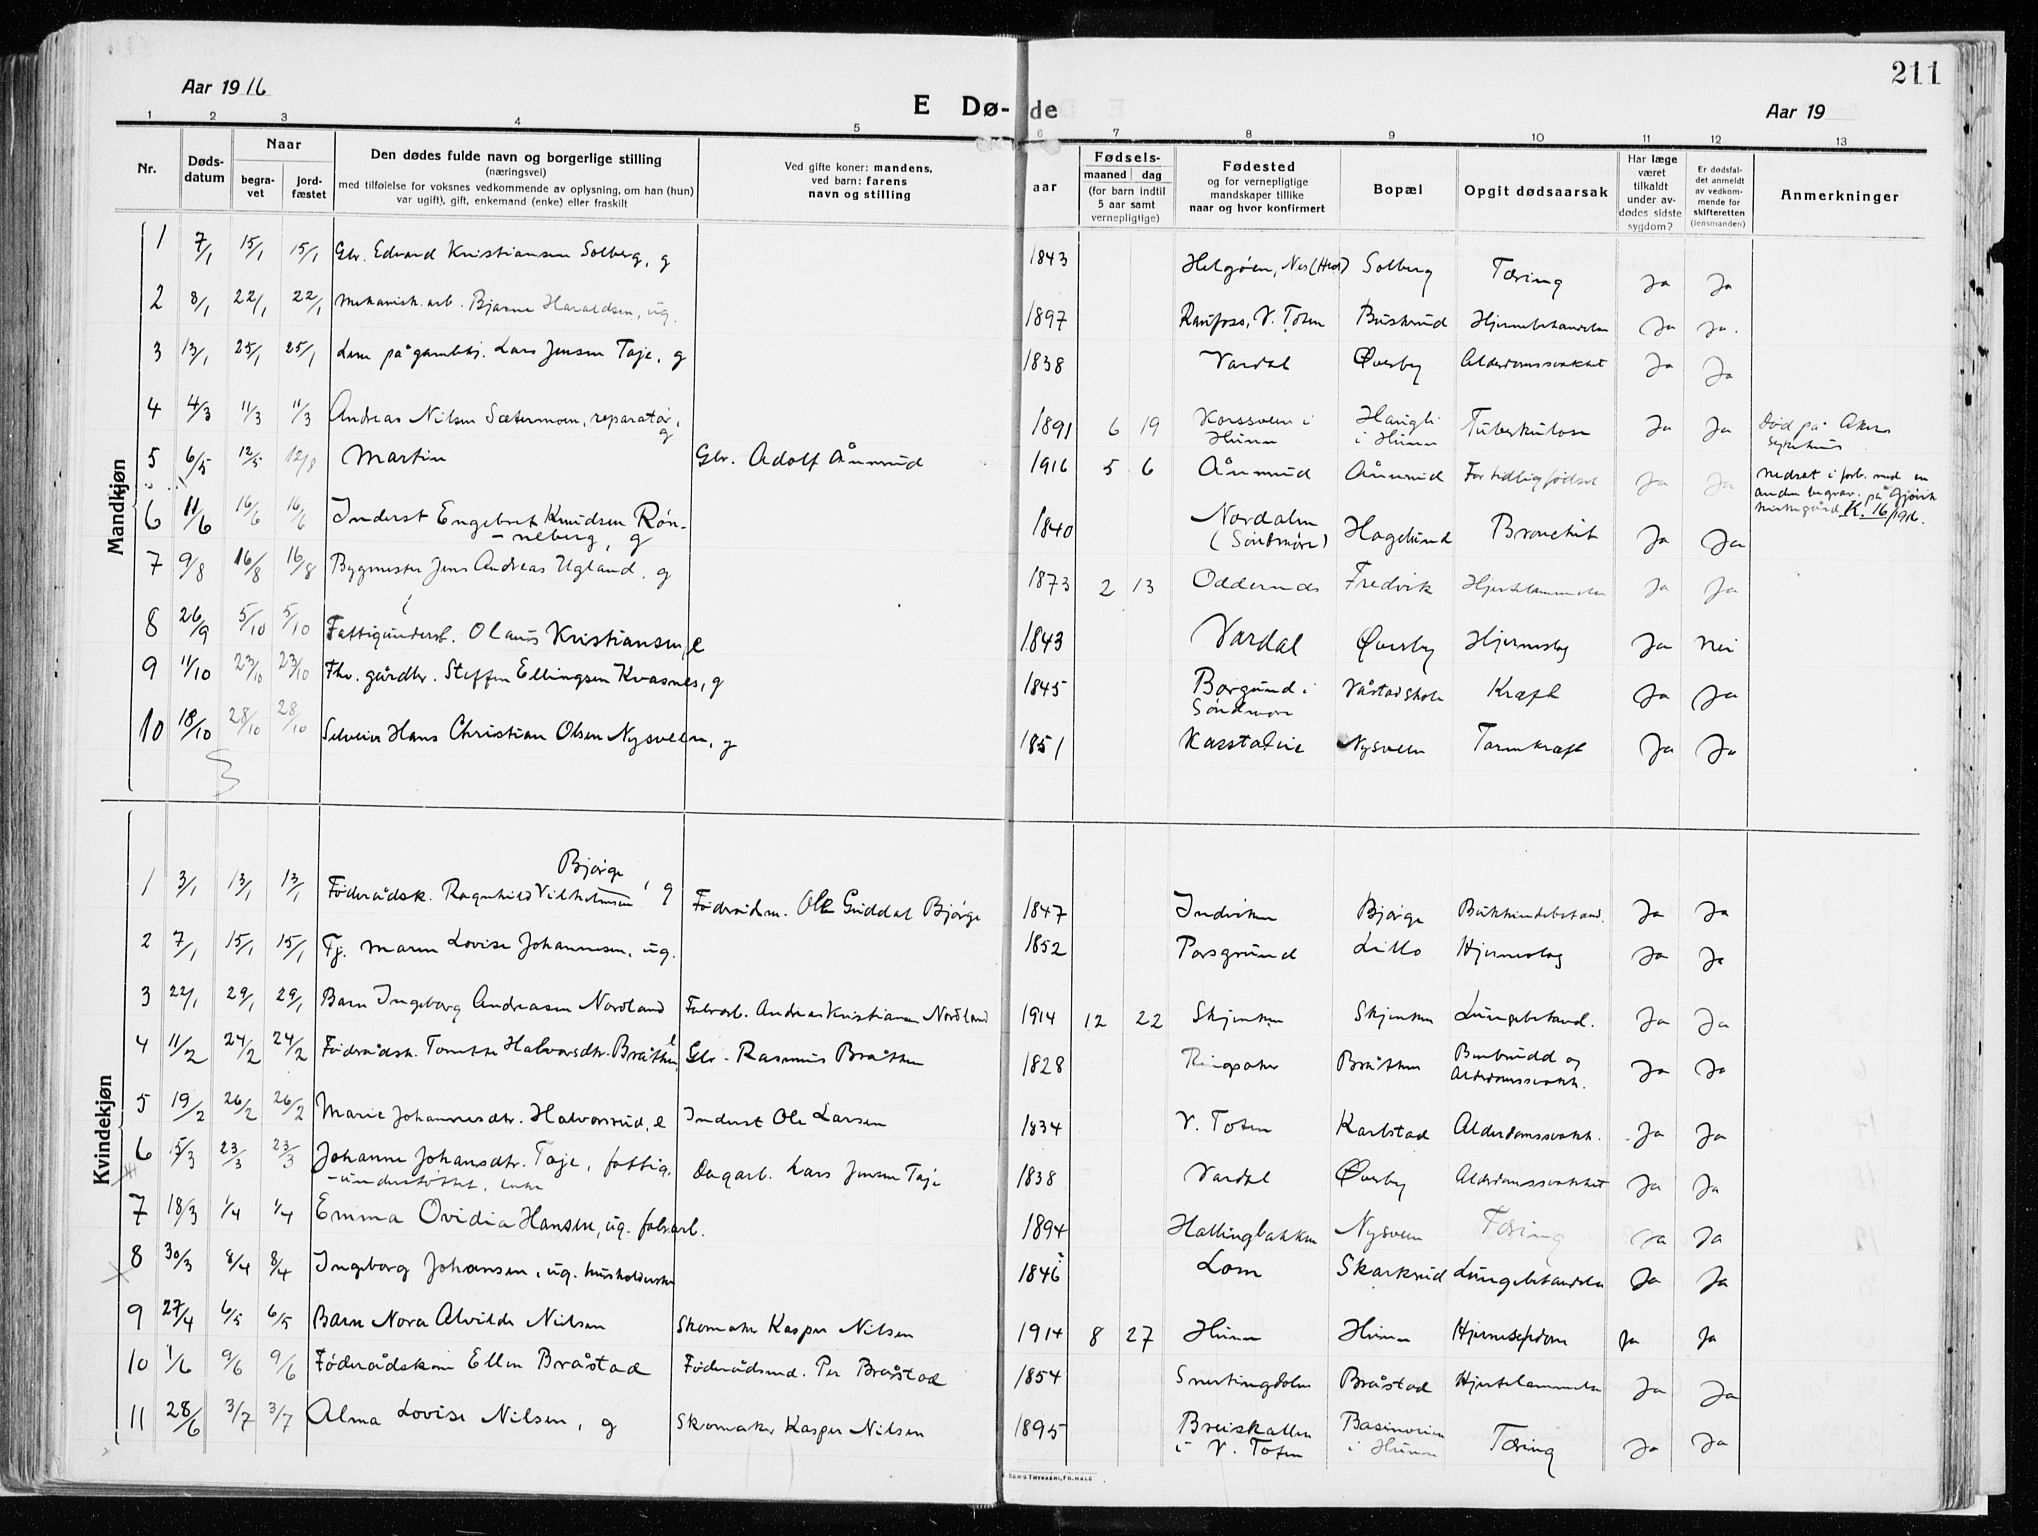 211
Aar 1916
E Dø-de
Aar 19
1 2 3 4 5 6 7 8 9 10 11 12 13
Nr.
Døds-
datum
Naar
begra-
vet
jord-
fæstet
Den dødes fulde navn og borgerlige stilling
(næringsvei)
med tilføielse for voksnes vedkommende av oplysning, om han (hun)
var ugift), gift, enkemand (enke) eller fraskilt
Ved gifte koner: mandens,
ved barn: farens
navn og stilling
Fødsels-
aar
maaned dag
(for barn indtil
5 aar samt
vernepligtige)
Fødested
og for vernepligtige
mandskaper tillike
naar og hvor konfirmert
Bopæl
Opgit dødsaarsak
Har læge
været
tilkaldt
under av-
dødes sidste
sygdom?
Er dødsfal-
det anmeldt
av vedkom-
mende for
skifteretten
(lensmanden)
Anmerkninger
Mandkjøn
1 7/1 15/1 15/1 Gbr. Edvard Kristiansen Solberg, g 1843 Helgøen, Nes (Hed) Solberg Tæring Ja Ja
2 8/1 22/1 22/1 Mekanisk. arb. Bjarne Haraldsen, ug. 1897 Raufoss, V. Toten Buskrud Ja Ja.
3 13/1 25/1 25/1 Lars Jensen Taje, g 1838 Vardal Øverby Alderdomssvakhet Ja Ja
4 4/3 11/3 11/3 Andreas Nilsen Sætermoen, reparatør, g 1891 6 19 Korsveen i Hunn Haugli i Hunn Tuberkulose Ja Ja Død på Akers sykehus
5 6/5 12/5 12/8 Martin Gbr. Adolf Ånnerud 1916 5 6 Ånnerud Ånnerud For tidlig fødsel Ja Ja nedsat i forb. med en
anden begrav. på Gjøvik
kirkegård K. 16/1916.
6 11/6 16/6 16/6 Inderst Engebret Knudsen Røn-
neberg, g 1840 Nordalen (Søndmøre) Hagelund Bronchit Ja Ja
7 9/8 16/8 16/8 Bygmester Jens Andreas Ugland, g 1873 2 13 Oddernes Fredvik Hjertelammelse Ja Ja
8 26/9 5/10 5/10 Fattigunderst. Olaus Kristiansen, e 1843 Vardal Øverby Hjerneslag Ja Nei
9 11/10 23/10 23/10 Fhv. gårdbr. Steffen Ellingsen Kvasnes, g 1845 Borgund i Søndmøre Kræft Ja Ja
10 18/10 28/10 28/10 Selveier Hans Christian Olsen Nysveen, g 1851 Nysveen Tarmkræft Ja Ja
Kvindekjøn
1 3/1 13/1 13/1 Føderådsk. Ragnhild Vilhelmsen Bjørge, g Føderådsm. Ole Guddal Bjørge 1847 Indviken Bjørge Ja Ja
2 7/1 15/1 15/1 Tj. Maren Lovise Johannesen, ug. 1852 Porsgrund Lillo Hjerneslag Ja Ja
3 22/1 29/1 29/1 Barn Ingeborg Andreasen Nordland Fabrarb. Andreas Kristiansen Nordland 1914 12 22 Skjerken Skjerken Lungebetænd. Ja Ja
4 11/2 24/2 24/2 Føderådsk. Halvorsdtr. Bråthen, e Gbr. Rasmus Bråthen 1828 Ringsaker Bråthen Benbrudd og
Alderdomssvakh. Ja Ja
5 19/2 26/2 26/2 Marie Johannesdtr. Halvorsrud, e Inderst Ole Larsen 1834 V. Toten Karlstad Alderdomssvakh. Ja Ja
6 15/3 23/3 23/3 Johanne Johansdtr. Taje, fattig-
understøttet, enke Dagarb. Lars Jensen Taje 1838 Vardal Øverby Alderdomssvakhet Ja Ja
7 18/3 1/4 1/4 Emma Ovidia Hansen, ug. fabrarb. 1894 Hallingbakken Nysveen Tæring Ja Ja
8 30/3 8/4 8/4 Ingeborg Johansen, ug. husholderske 1846? Lom Skarkrud Lungebetændelse Ja Ja
9 27/4 6/5 6/5 Barn Nora Alvilde Nilsen Skomaker Kasper Nilsen 1914 8 27 Hunn Hunn Hjernesykdom Ja Ja
10 1/6 9/6 9/6 Føderådskone Ellen Bråstad Føderådsmd. Per Bråstad 1854 Snertingdalen Bråstad Hjertelammelse Ja Ja
11 28/6 3/7 3/7 Alma Lovise Nilsen, g Skomaker Kasper Nilsen 1895 Breiskallen i V. Toten i Hunn Tæring Ja Ja